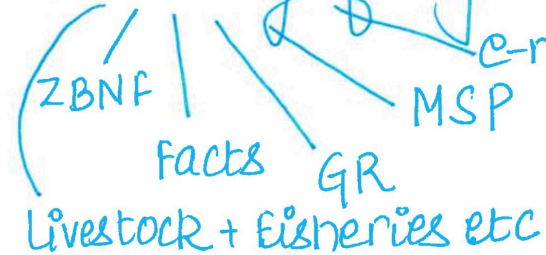 e-r
ZBNF
MSP
Facts
GR
Livestock + Fisheries etc